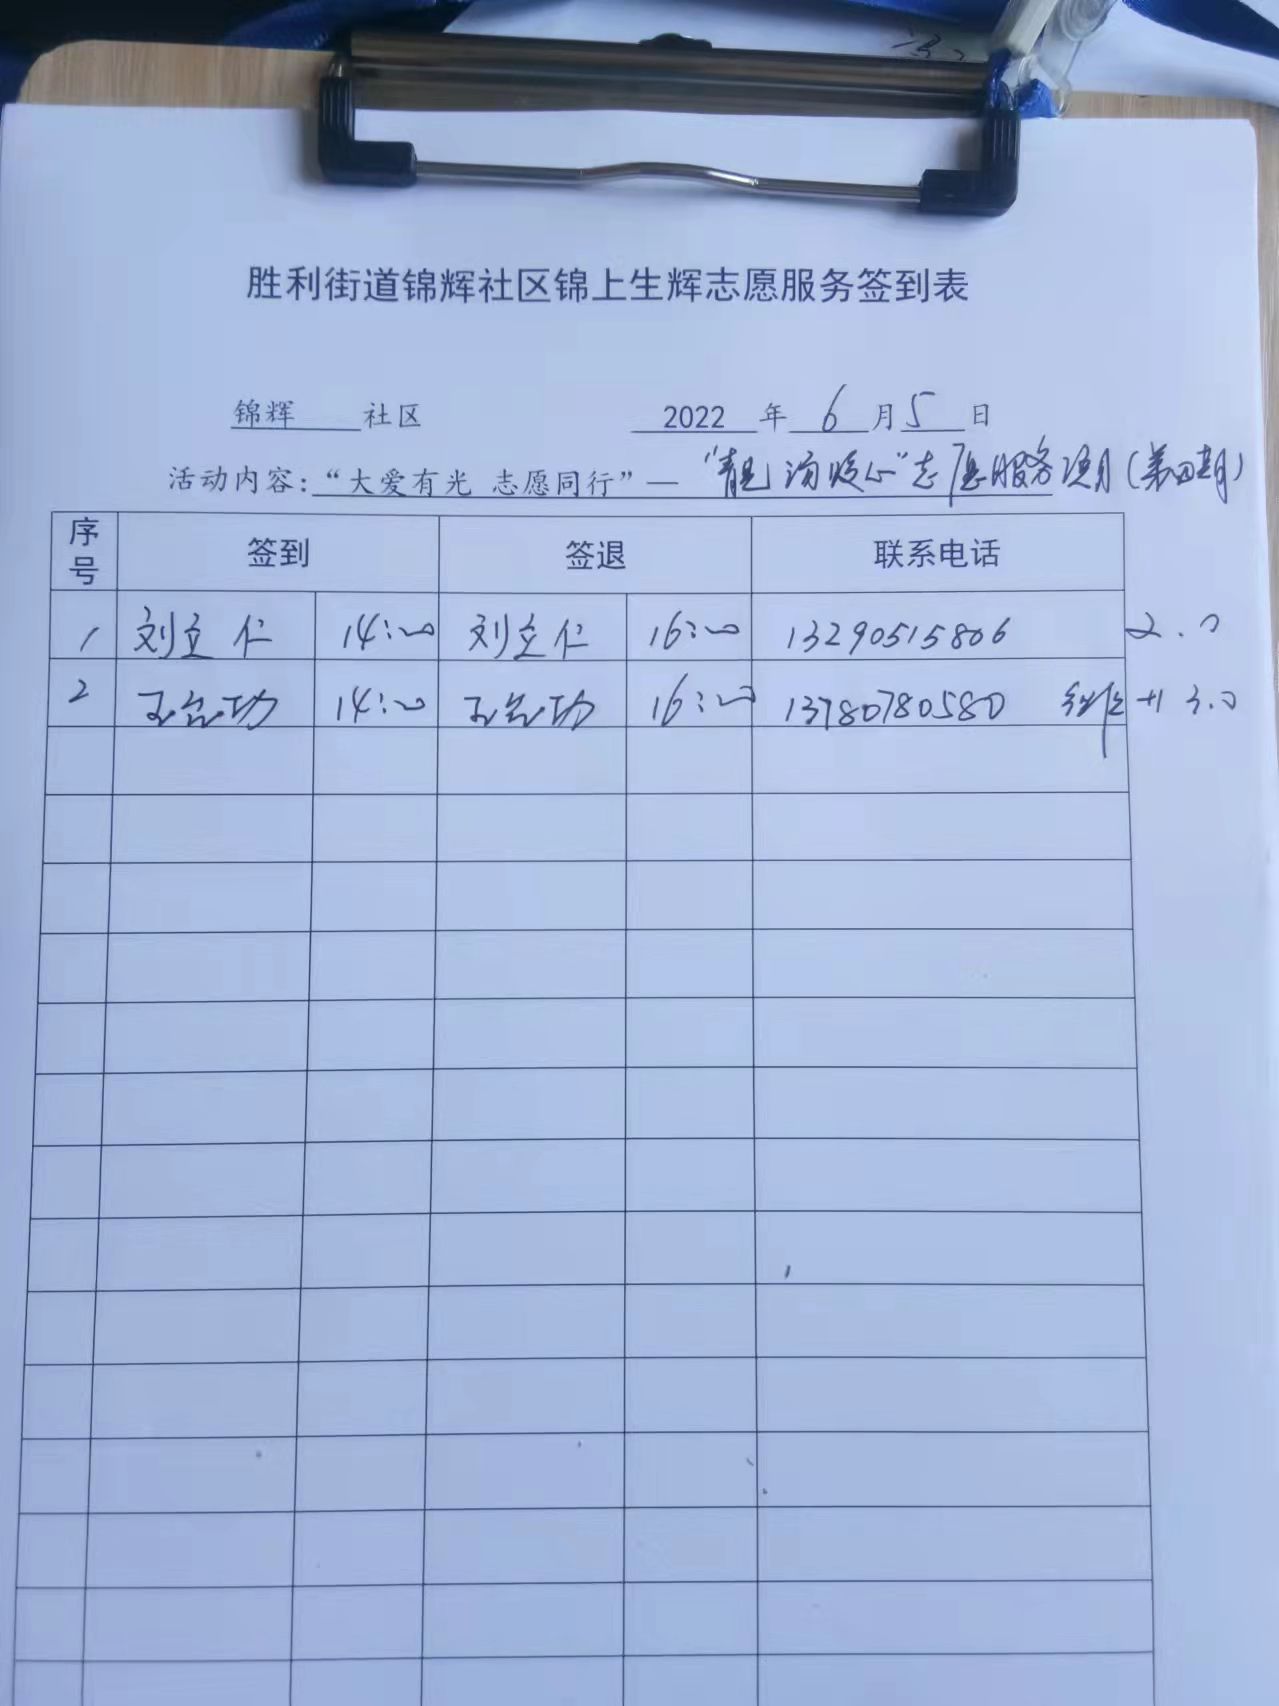 胜利街道锦辉社区锦上生辉志愿服务签到表
锦辉 社区 2022 年 6 月 5 日
活动内容：“大爱有光 志愿同行”— “靓汤暖心”志愿服务项目（第四期）
序号 签到 签退 联系电话
1 刘立仁 14:00 刘立仁 16:00 13290515806 2.0
2 14:00 16:00 13780780580 +1 3.0